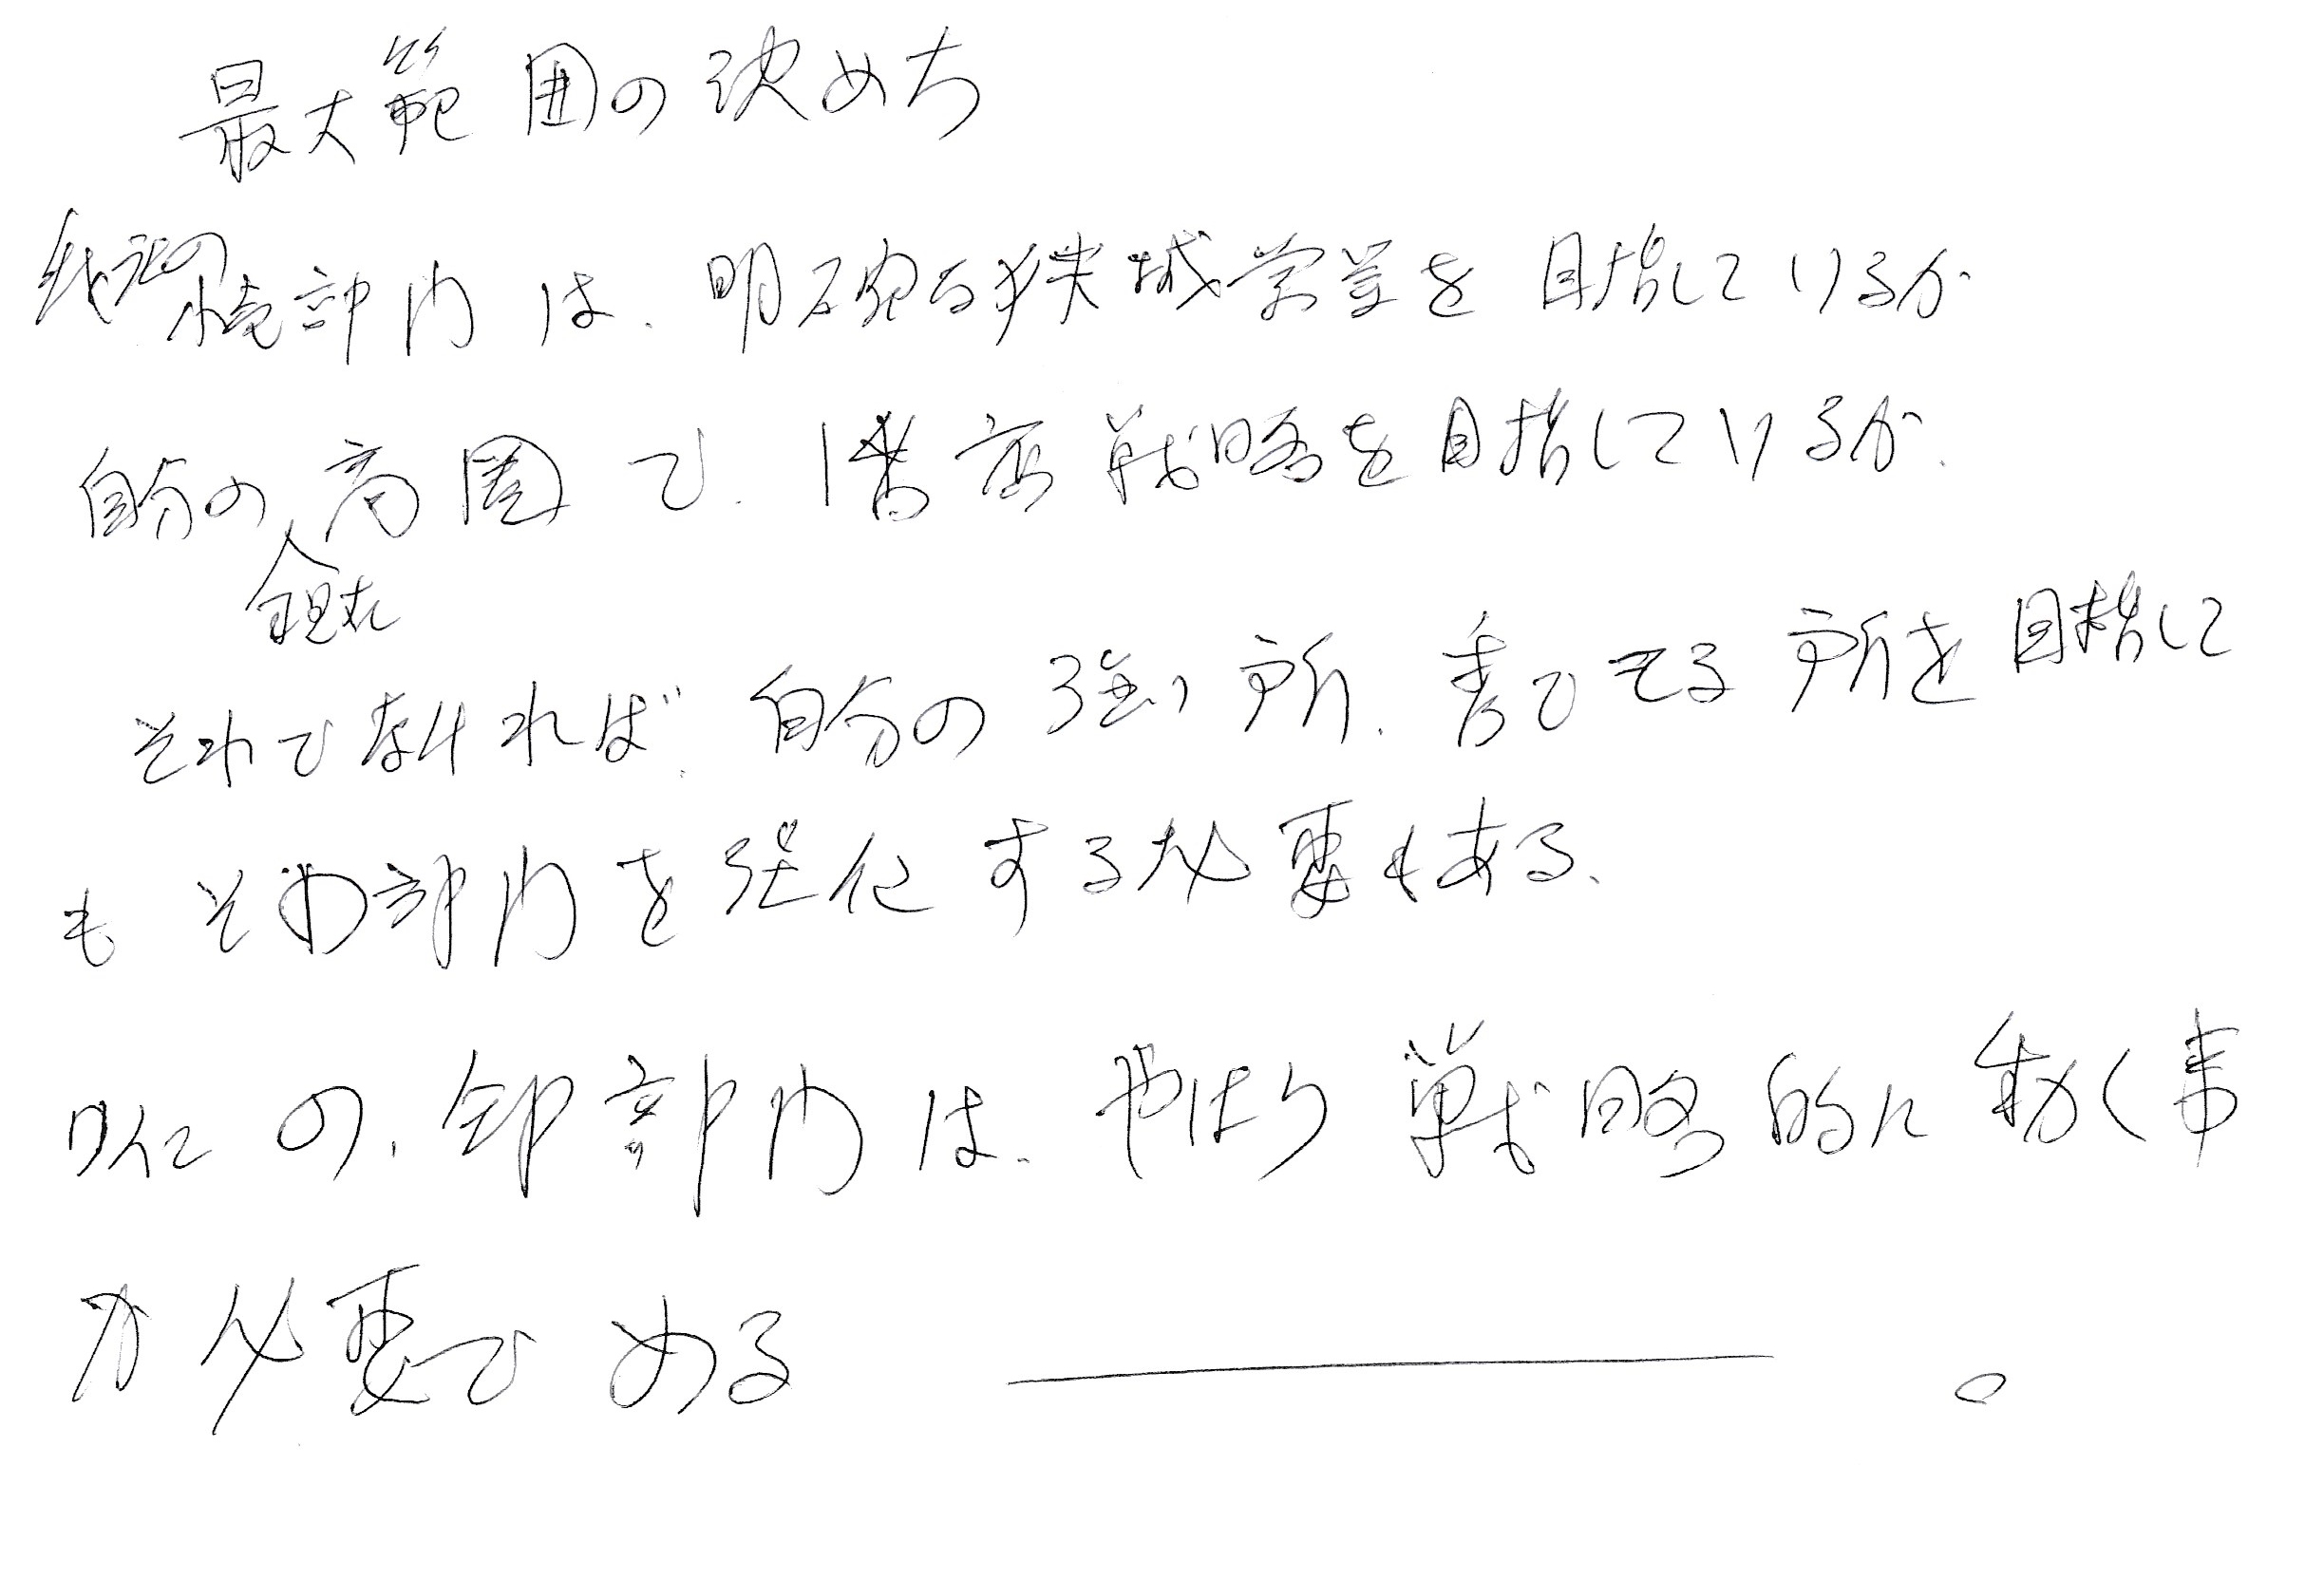 最大範囲の決め方
部内は、明確な狭域営業を目指しているか
自分の商圏で、1番店戦略を目指しているか、
それでなければ、自分の強い所、秀でてる所を目指して
もその部内を強化する必要もある、
の、卸部内は、やはり戦略的に動く事
が必要である ——— 。